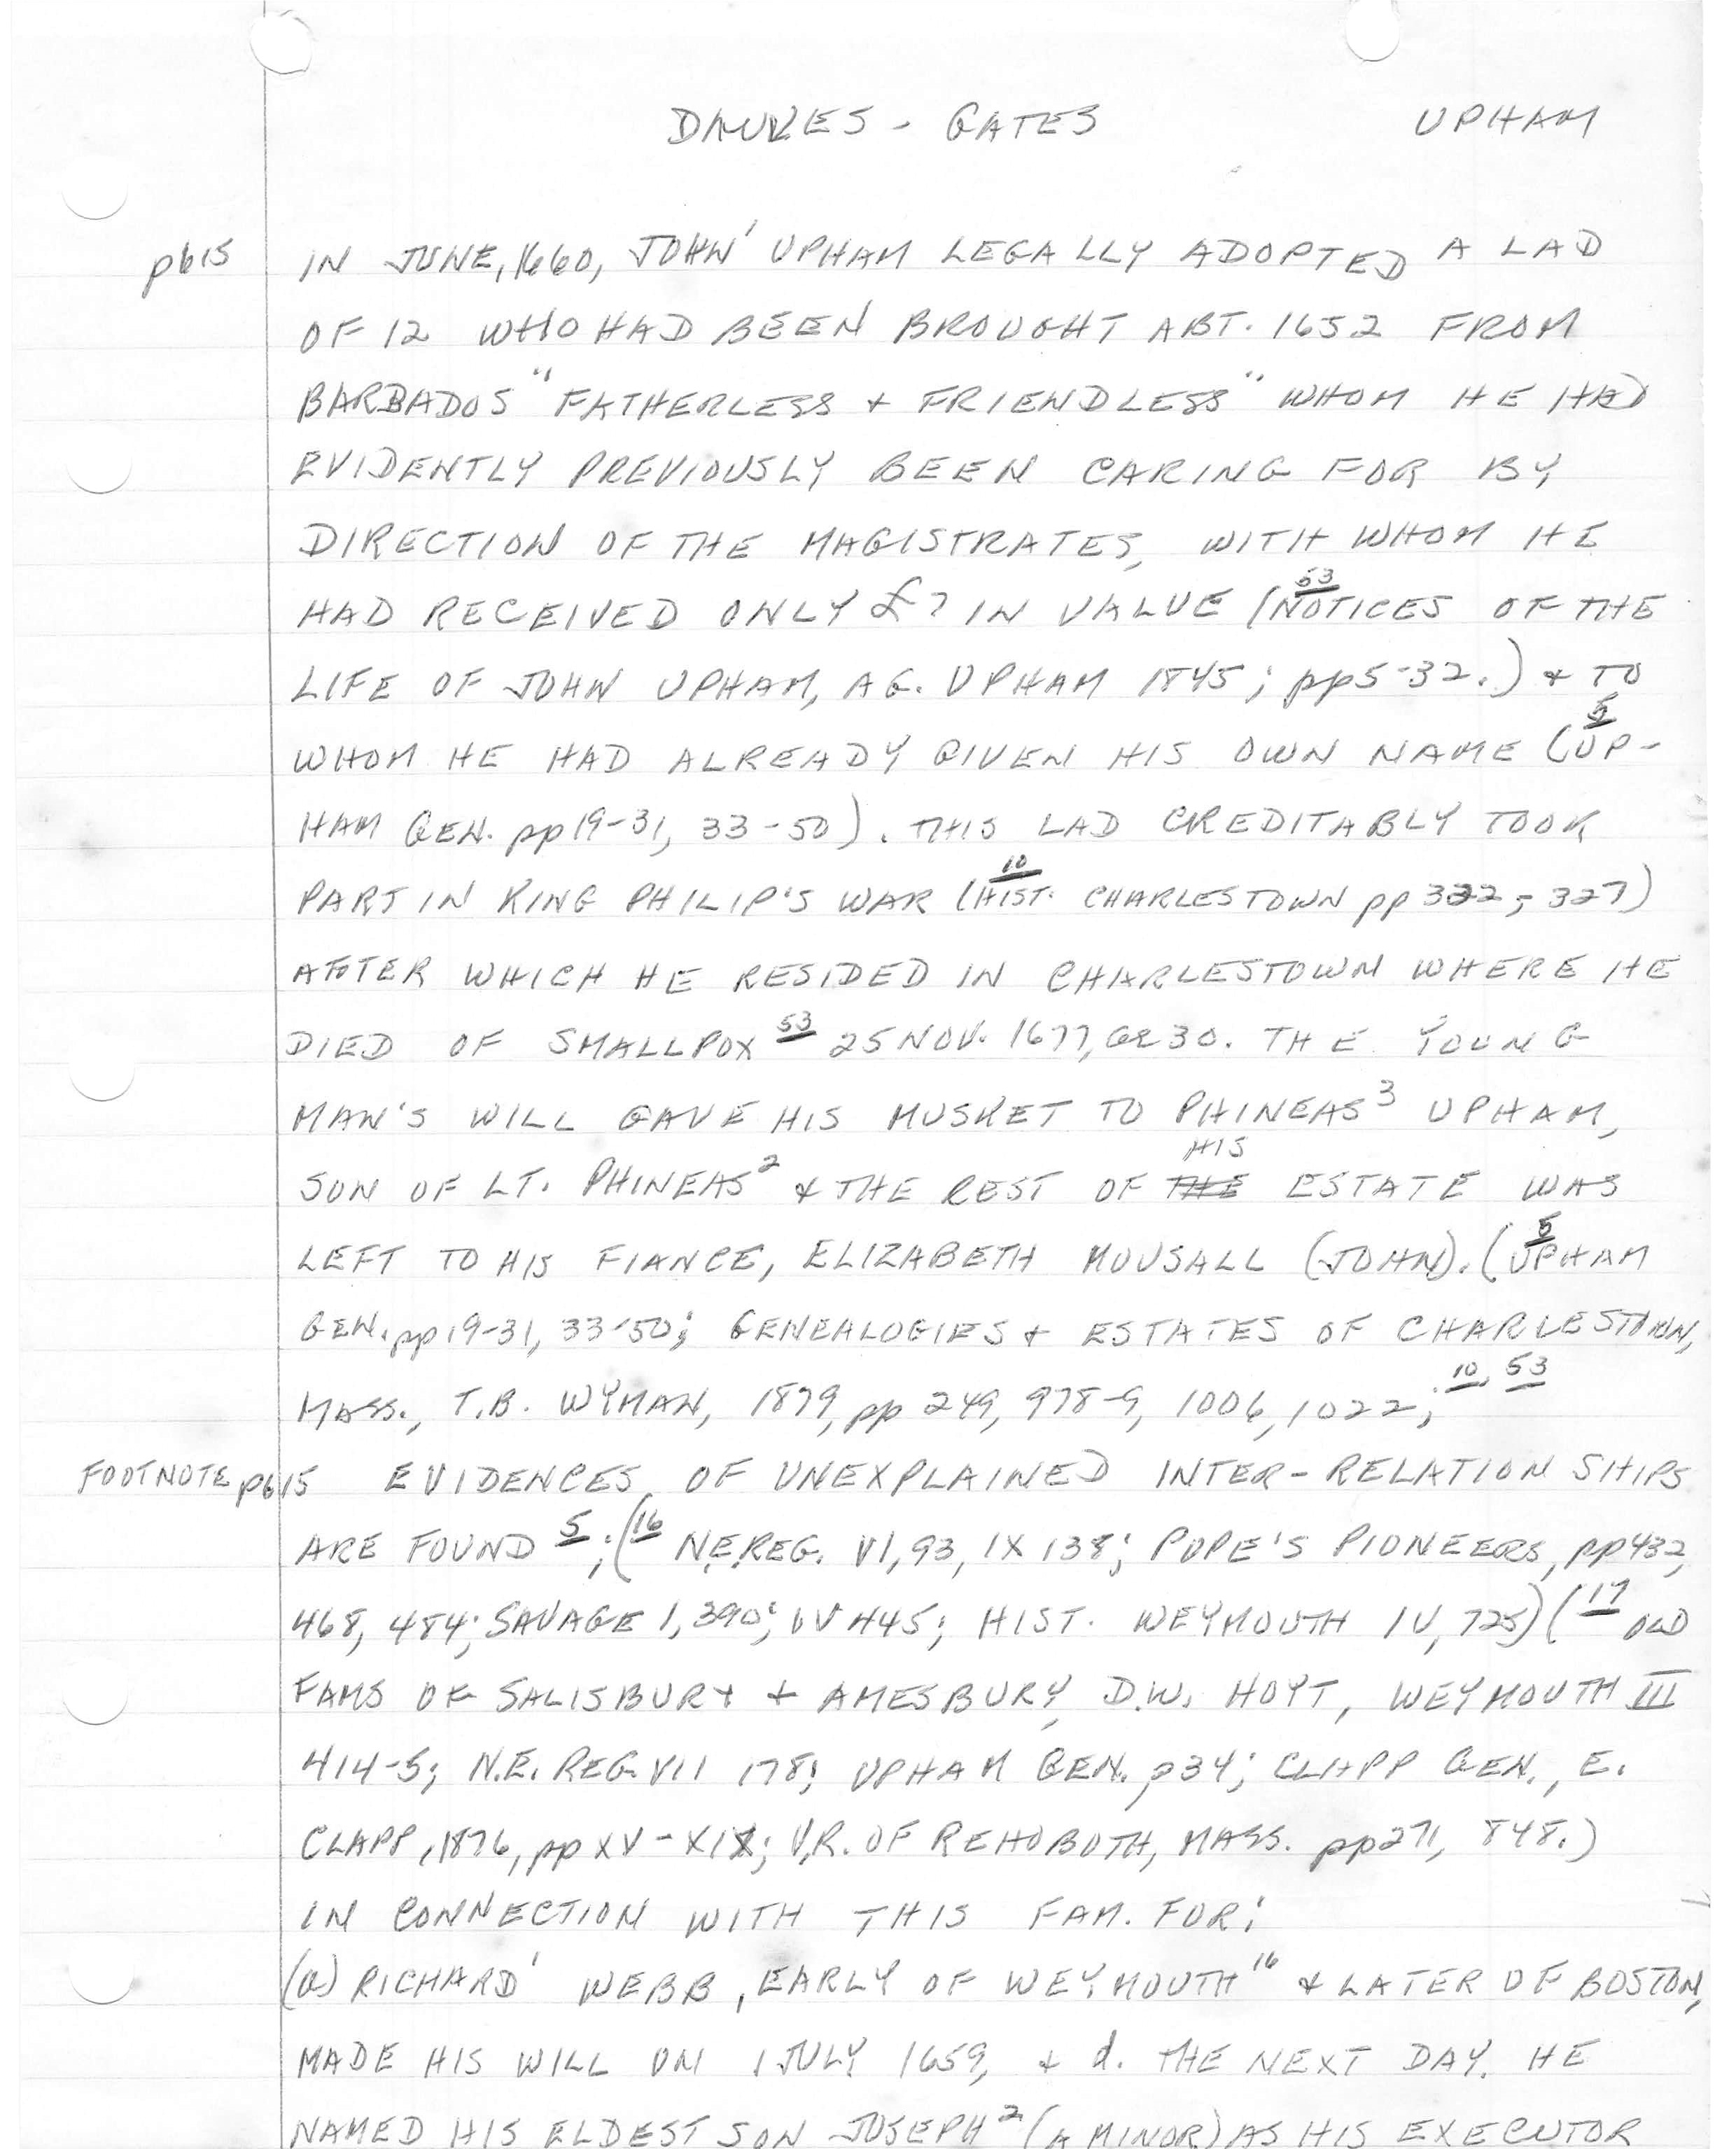 DAWES - GATES UPHAM
p615 IN JUNE, 1660, JOHN¹ UPHAM LEGALLY ADOPTED A LAD
OF 12 WHO HAD BEEN BROUGHT ABT. 1652 FROM
BARBADOS "FATHERLESS + FRIENDLESS" WHOM HE HAD
EVIDENTLY PREVIOUSLY BEEN CARING FOR BY
DIRECTION OF THE MAGISTRATES, WITH WHOM HE
HAD RECEIVED ONLY £7 IN VALUE (53 NOTICES OF THE
LIFE OF JOHN UPHAM, A.G. UPHAM 1845; pp5-32.) + TO
WHOM HE HAD ALREADY GIVEN HIS OWN NAME (5 UP-
HAM GEN. pp19-31, 33-50). THIS LAD CREDITABLY TOOK
PART IN KING PHILIP'S WAR (10 HIST. CHARLESTOWN pp 322, 327)
AFTER WHICH HE RESIDED IN CHARLESTOWN WHERE HE
DIED OF SMALLPOX 53 25 NOV. 1677, ae 30. THE YOUNG
MAN'S WILL GAVE HIS MUSKET TO PHINEAS³ UPHAM,
SON OF LT. PHINEAS² + THE REST OF HIS ESTATE WAS
LEFT TO HIS FIANCE, ELIZABETH MOUSALL (JOHN). (5 UPHAM
GEN. pp19-31, 33-50; GENEALOGIES + ESTATES OF CHARLESTOWN,
MASS., T.B. WYMAN, 1879, pp 249, 978-9, 1006, 1022; 10, 53
FOOTNOTE p615 EVIDENCES OF UNEXPLAINED INTER-RELATION SHIPS
ARE FOUND 5; (16 N.E. REG. VI, 93, IX 138; POPE'S PIONEERS, pp432,
468, 484; SAVAGE 1, 390; IV 445; HIST. WEYMOUTH IV, 725) (17 OLD
FAMS OF SALISBURY + AMESBURY, D.W. HOYT, WEYMOUTH III
414-5; N.E. REG. VII 178; UPHAM GEN. p34; CLAPP GEN., E.
CLAPP, 1876, pp XV-XIX; V.R. OF REHOBOTH, MASS. pp271, 848.)
IN CONNECTION WITH THIS FAM. FOR:
(a) RICHARD¹ WEBB, EARLY OF WEYMOUTH 16 + LATER OF BOSTON,
MADE HIS WILL ON 1 JULY 1659, + d. THE NEXT DAY. HE
NAMED HIS ELDEST SON JOSEPH² (A MINOR) AS HIS EXECUTOR